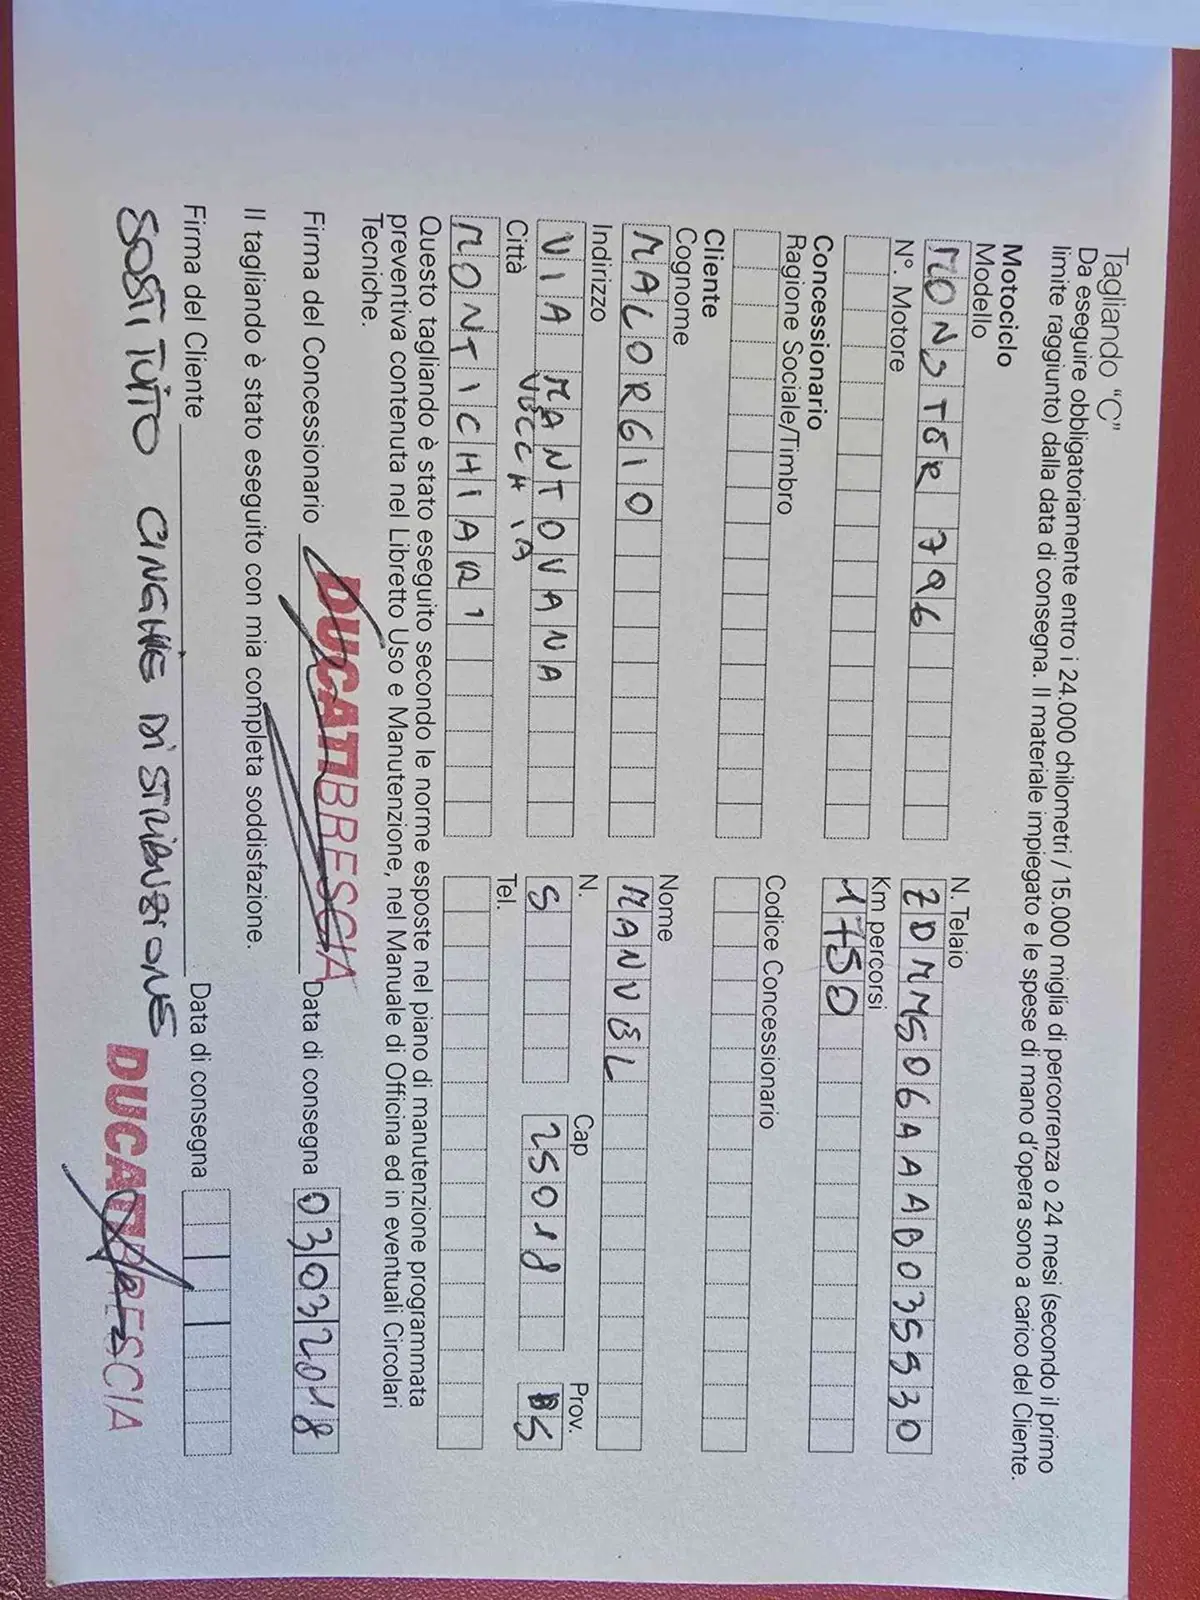 Tagliando "C"
Da eseguire obbligatoriamente entro i 24.000 chilometri / 15.000 miglia di percorrenza o 24 mesi (secondo il primo
limite raggiunto) dalla data di consegna. Il materiale impiegato e le spese di mano d'opera sono a carico del Cliente.
Motociclo
Modello N. Telaio
MONSTER 796 ZDMM506AAAB035530
N°. Motore Km percorsi
1750
Concessionario
Ragione Sociale/Timbro Codice Concessionario
Cliente
Cognome Nome
MALORGIO MANUEL
Indirizzo N. Cap Prov.
VIA MANTOVANA 5 25018 BS
VECCHIA
Città Tel.
MONTICHIARI
Questo tagliando è stato eseguito secondo le norme esposte nel piano di manutenzione programmata
preventiva contenuta nel Libretto Uso e Manutenzione, nel Manuale di Officina ed in eventuali Circolari
Tecniche.
DUCATIBRESCIA
Firma del Concessionario Data di consegna 03032018
Il tagliando è stato eseguito con mia completa soddisfazione.
Firma del Cliente Data di consegna
SOSTITUITO CINGHIE DI STRIBUZIONE DUCATIBRESCIA